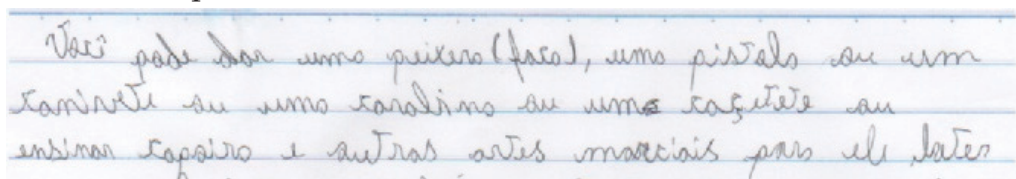 Você pode dar uma peixera (faca), uma pistola ou um
canivete ou uma carabina ou uma caçetete ou
ensinar capoira e outras artes marciais para ele bater